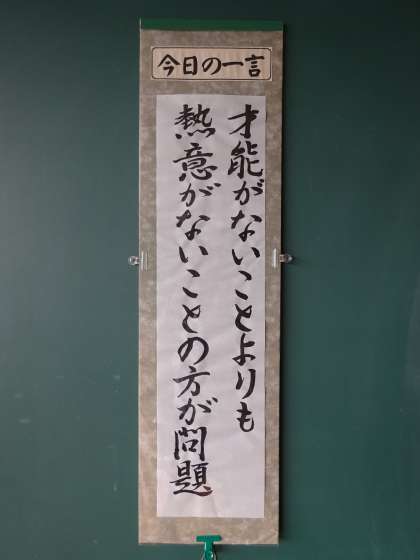 今日の一言
才能がないことよりも
熱意がないことの方が問題